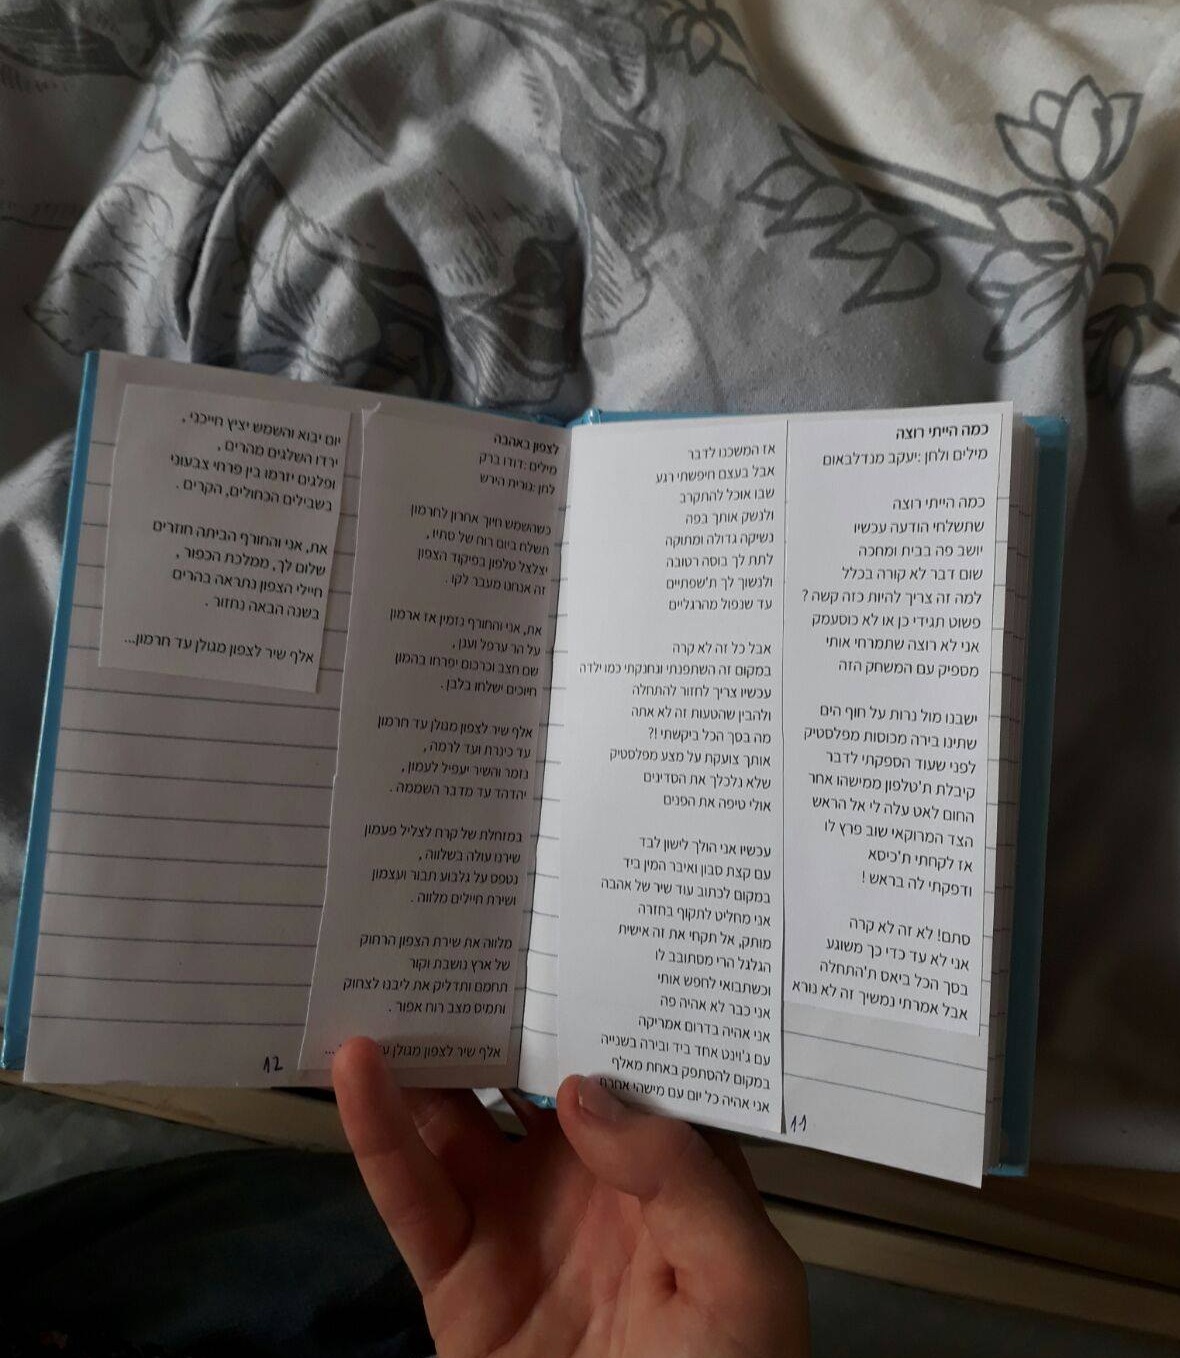 כמה הייתי רוצה
מילים ולחן :יעקב מנדלבאום
כמה הייתי רוצה
שתשלחי הודעה עכשיו
יושב פה בבית ומחכה
שום דבר לא קורה בכלל
למה זה צריך להיות כזה קשה ?
פשוט תגידי כן או לא כוסעמק
אני לא רוצה שתמרחי אותי
מספיק עם המשחק הזה
ישבנו מול נרות על חוף הים
שתינו בירה מכוסות מפלסטיק
לפני שעוד הספקתי לדבר
קיבלת ת'טלפון ממישהו אחר
החום לאט עלה לי אל הראש
הצד המרוקאי שוב פרץ לו
אז לקחתי ת'כיסא
ודפקתי לה בראש !
סתם! לא זה לא קרה
אני לא עד כדי כך משוגע
בסך הכל ביאס ת'התחלה
אבל אמרתי נמשיך זה לא נורא
אז המשכנו לדבר
אבל בעצם חיפשתי רגע
שבו אוכל להתקרב
ולנשק אותך בפה
נשיקה גדולה ומתוקה
לתת לך בוסה רטובה
ולנשוך לך ת'שפתיים
עד שנפול מהרגליים
אבל כל זה לא קרה
במקום זה השתפנתי ונחנקתי כמו ילדה
עכשיו צריך לחזור להתחלה
ולהבין שהטעות זה לא אתה
מה בסך הכל ביקשתי !?
אותך צועקת על מצע מפלסטיק
שלא נלכלך את הסדינים
אולי טיפה את הפנים
עכשיו אני הולך לישון לבד
עם קצת סבון ואיבר המין ביד
במקום לכתוב עוד שיר של אהבה
אני מחליט לתקוף בחזרה
מותק, אל תקחי את זה אישית
הגלגל הרי מסתובב לו
וכשתבואי לחפש אותי
אני כבר לא אהיה פה
אני אהיה בדרום אמריקה
עם ג'וינט אחד ביד ובירה בשנייה
במקום להסתפק באחת מאלף
אני אהיה כל יום עם מישהי אחרת
11
לצפון באהבה
מילים :דודו ברק
לחן :נורית הירש
כשהשמש חיוך אחרון לחרמון
תשלח ביום רוח של סתיו ,
יצלצל טלפון בפיקוד הצפון
זה אנחנו מעבר לקו .
את, אני והחורף נזמין אז ארמון
על הר ערפל וענן ,
שם חצב וכרכום יפרחו בהמון
חיוכים ישלחו בלבן .
אלף שיר לצפון מגולן עד חרמון
עד כינרת ועד לרמה ,
נזמר והשיר יעפיל לעמון ,
יהדהד עד מדבר השממה .
במזחלת של קרח לצליל פעמון
שירנו עולה בשלווה ,
נטפס על גלבוע תבור ועצמון
ושירת חיילים מלווה .
מלווה את שירת הצפון הרחוק
של ארץ נושבת וקור
תחמם ותדליק את ליבנו לצחוק
ותמיס מצב רוח אפור .
אלף שיר לצפון מגולן
יום יבוא והשמש יציץ חייכני ,
ירדו השלגים מהרים ,
ופלגים יזרמו בין פרחי צבעוני
בשבילים הכחולים, הקרים .
את, אני והחורף הביתה חוזרים
שלום לך, ממלכת הכפור ,
חיילי הצפון נתראה בהרים
בשנה הבאה נחזור .
אלף שיר לצפון מגולן עד חרמון...
12